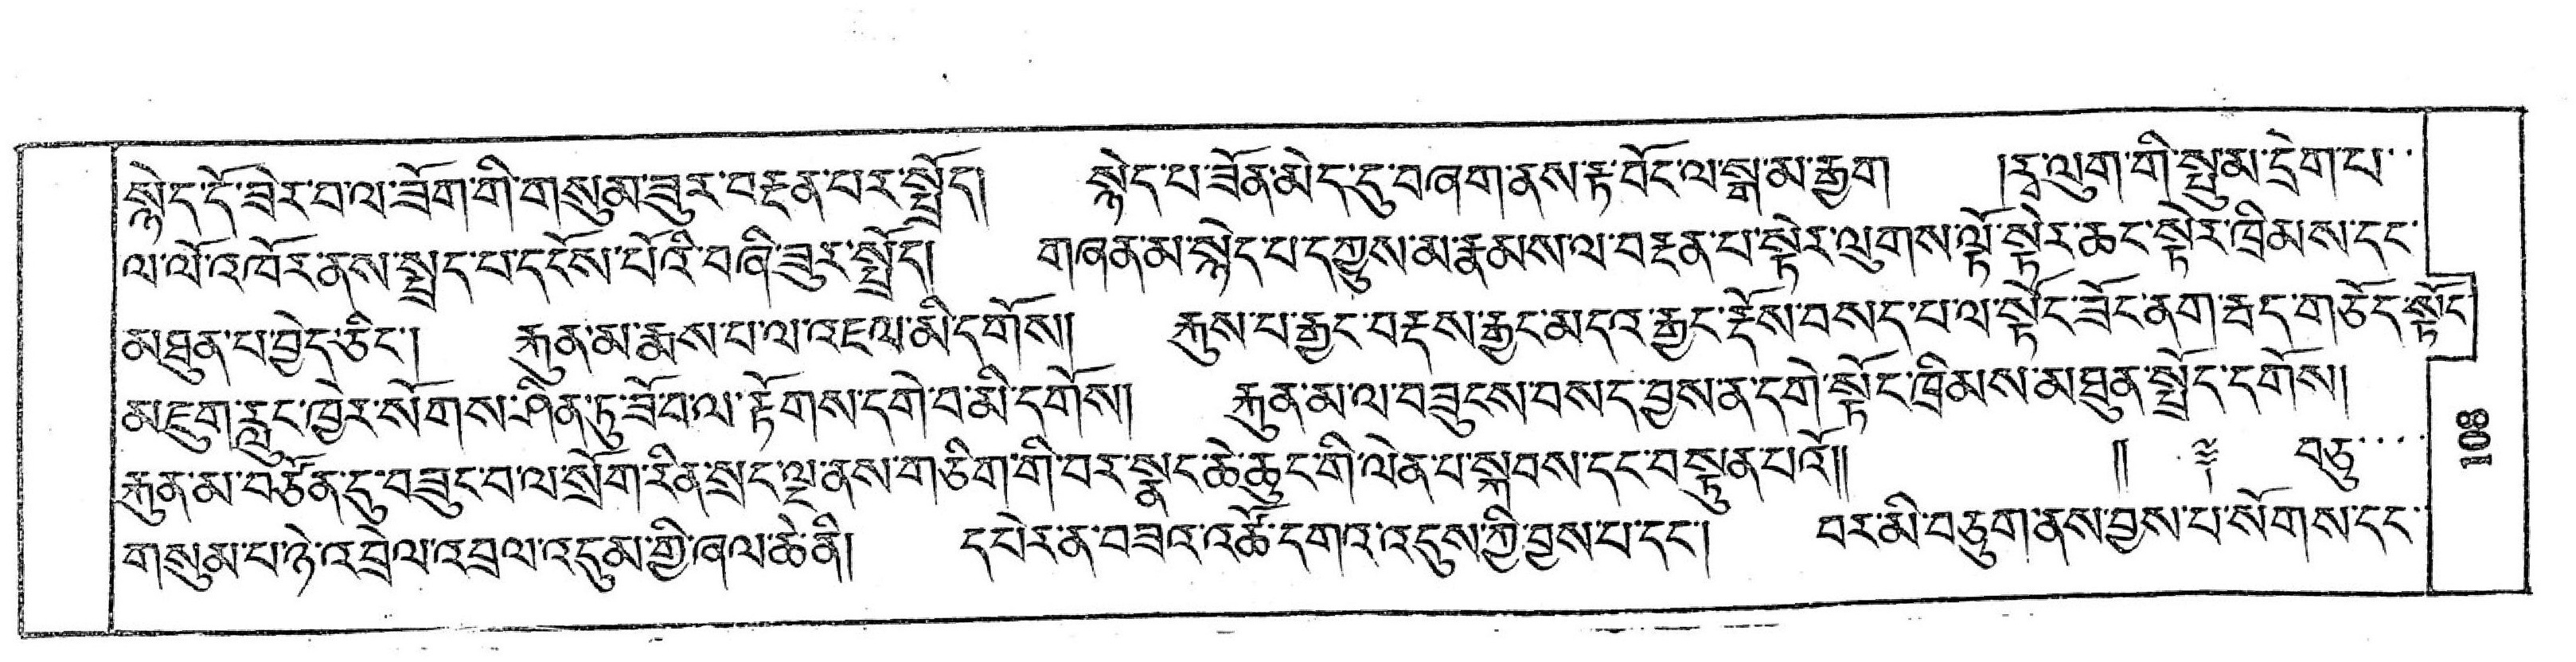 སྙེད་དོ་ཟེར་བ་ལ་ཟོག་གི་གསུམ་ཟུར་བརྡན་པར་སྤྲོད། སྙེད་པ་ཟོན་མེད་དུ་བཞག་ནས་རྟ་བོང་ལ་སྒ་མ་རྒྱག །རྭ་ལུག་གི་སྤུ་མ་དྲེག་པ་
ལ་ལོ་འཁོར་ནས་སྤྲད་པ་དངོས་པོའི་བཞི་ཟུར་སྤྲོད། གཞན་མ་སྙེད་པ་དཀྱུས་མ་རྣམས་ལ་བརྡན་པ་སྟེར་ལུགས་ལྟོ་སྟེར་ཆང་སྟེར་ཁྲིམས་དང་
མཐུན་པ་བྱེད་ཅིང་། རྐུན་མ་རྨས་པ་ལ་འཇལ་མི་དགོས། རྐུས་པ་རྒྱང་བརྡས་རྒྱང་མདའ་རྒྱང་རྡོས་བསད་པ་ལ་སྟོང་ཟོང་ནག་རྦད་གཅོད་སྟོང་
མཇུག་རླུང་ཁྱེར་སོགས་ཤིན་ཏུ་ཟོབ་ལ་རྟོགས་དགེ་བ་མི་དགོས། རྐུན་མ་ལ་བཟུངས་བསད་བྱས་ན་དགེ་སྟོང་ཁྲིམས་མཐུན་སྤྲོད་དགོས།
རྐུན་མ་བཙོན་དུ་བཟུང་བ་ལ་སྲོག་རིན་སྲང་ལྔ་ནས་གཅིག་གི་བར་སྣང་ཆེ་ཆུང་གི་ལེན་པ་སྐབས་དང་བསྟུན་པའོ།། །། ༈ བཅུ་
གསུམ་པ་ཉེ་འབྲེལ་འབྲལ་འདུམ་གྱི་ཞལ་ཆེ་ནི། དཔེར་ན་བཟའ་འཚོ་དགའ་འདུས་ཀྱི་བྱས་པ་དང་། བར་མི་བཅུག་ནས་བྱས་པ་སོགས་དང་
108